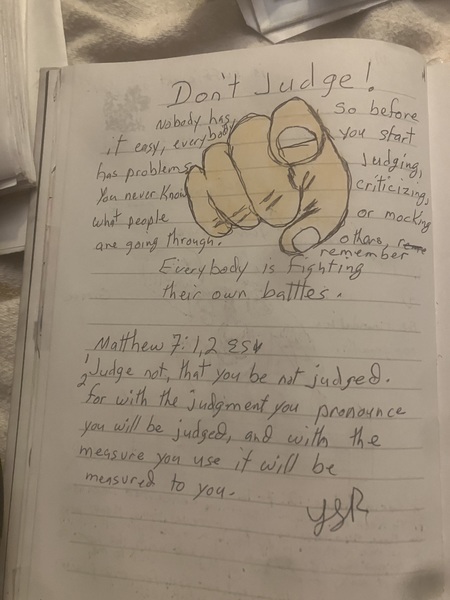 Don't Judge!
Nobody has
it easy, everybody
has problems
You never know
what people
are going through.
So before
you start
Judging,
criticizing,
or mocking
others,
remember
Everybody is Fighting
their own battles.
Matthew 7:1,2 ESV
1 Judge not, that you be not judged.
2 for with the judgment you pronounce
you will be judged, and with the
measure you use it will be
measured to you.